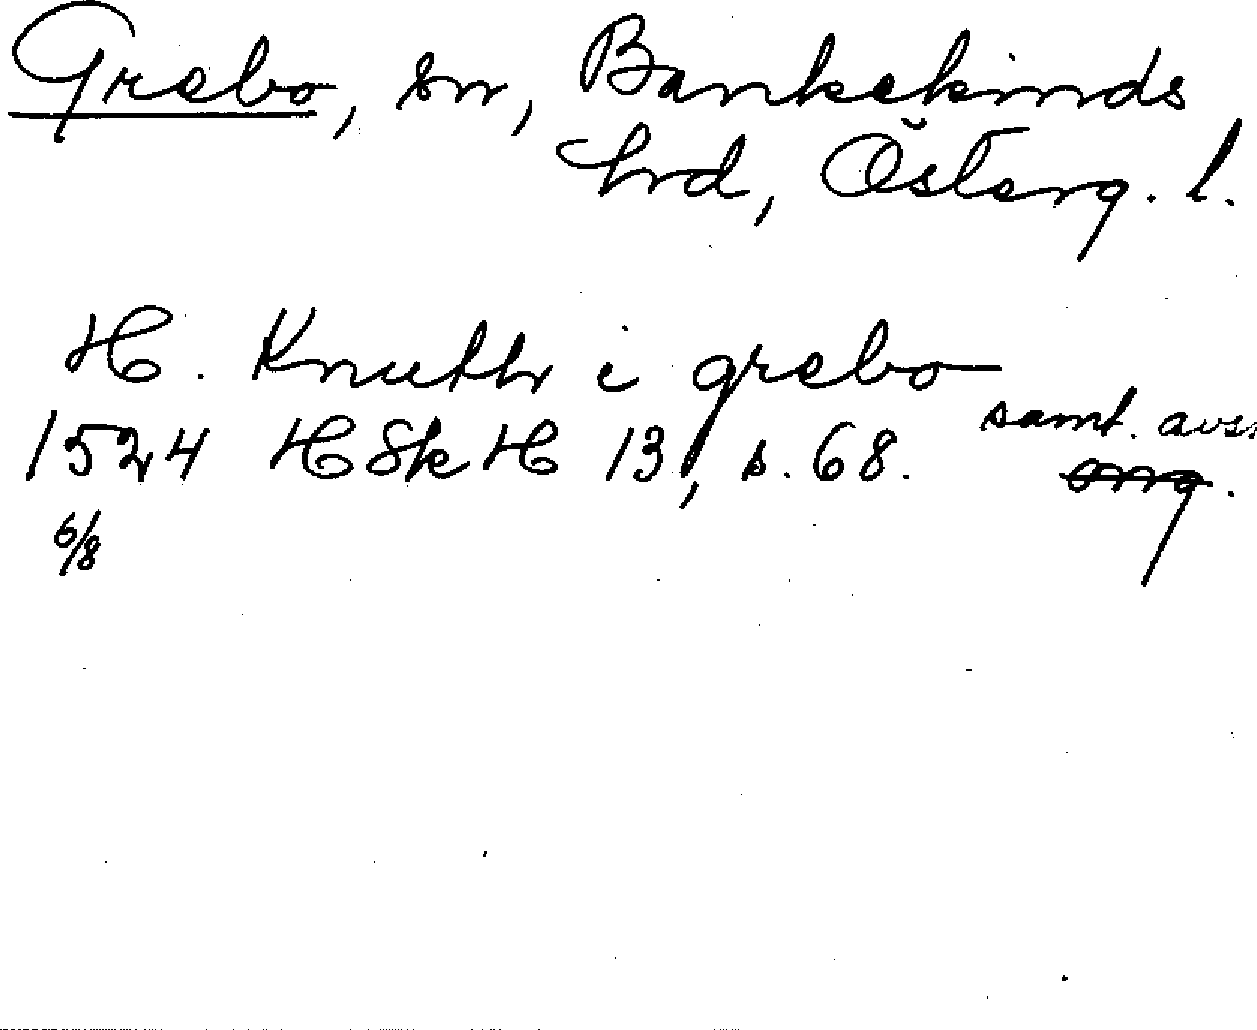 Grebo, sn, Bankekinds
hrd, Österg. l.
H. Knuth i grebo
1524 HSkH 13, s. 68. samt. avs.
orig.
6/8